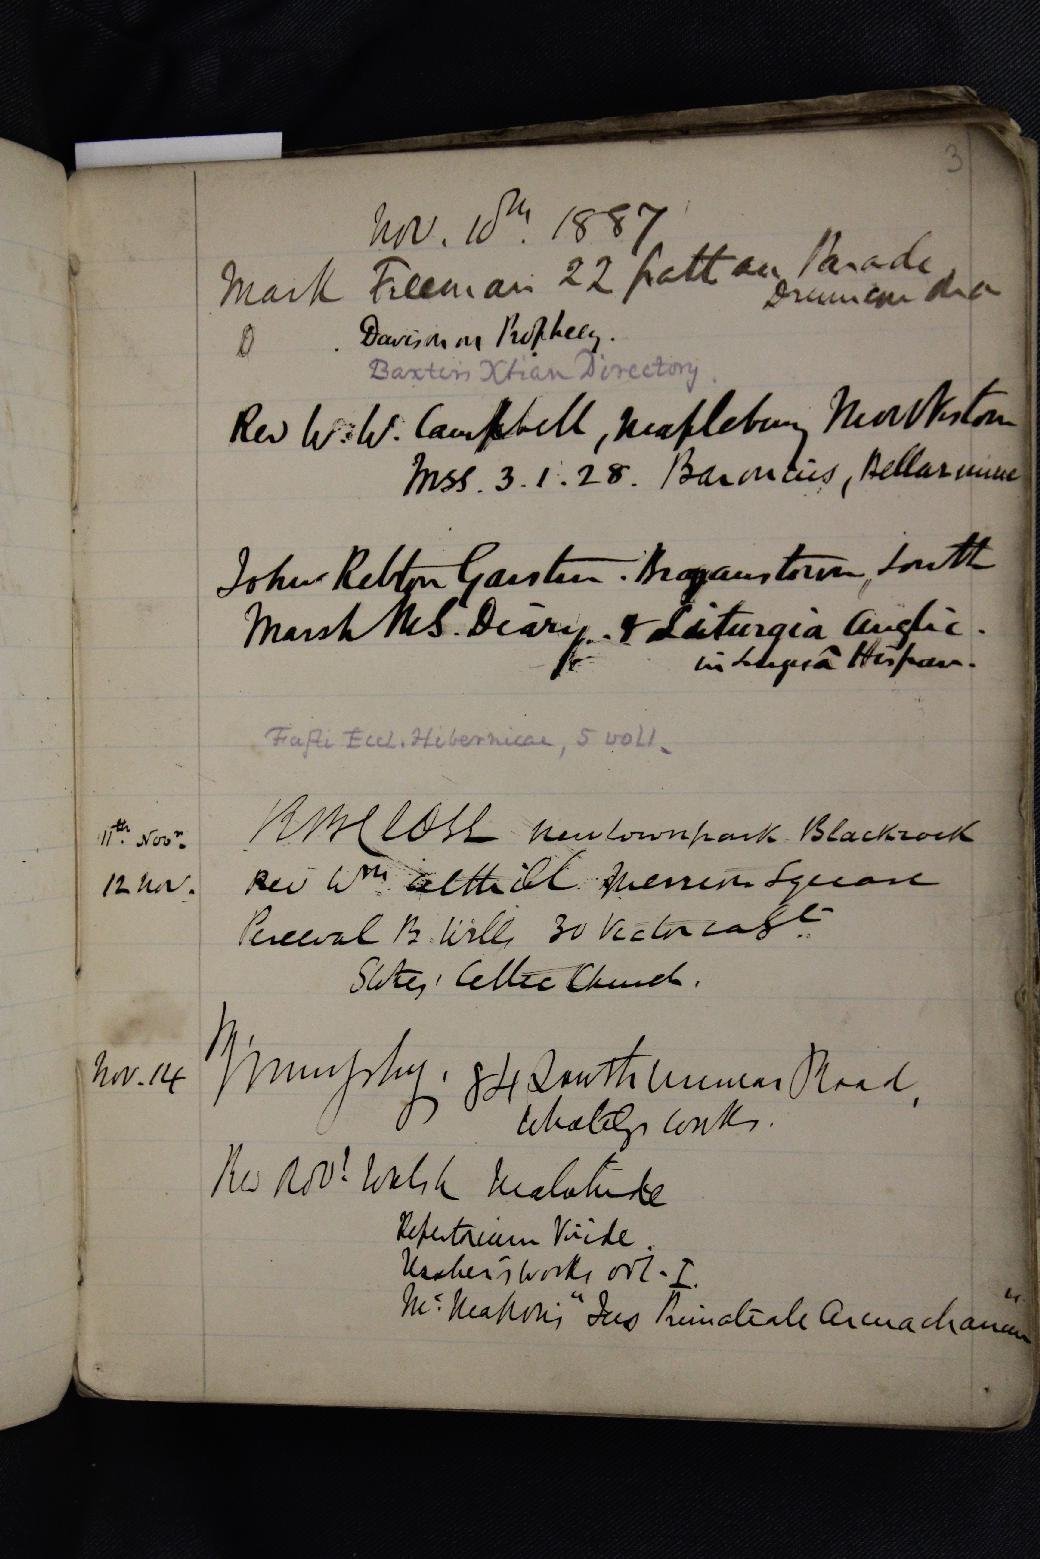 3
Nov. 10th. 1887
Mark Freeman 22 Grattan Parade
Drumcondra
D . Davison on Prophecy.
Baxter's Xtian Directory.
Rev W. W. Campbell, Maplebury Monkstown
Mss. 3.1.28. Baronius, Bellarmine
John Ribton Garstin. Braganstown, Louth
Marsh MS. Diary. & Liturgia Anglic.
in Linguâ Hispan.
Fasti Eccl. Hibernicae, 5 voll.
11th. Novr. Newtownpark Blackrock
12 Nov. Rev Wm Merrion Square
Perceval B. Wills 30
Stokes' Celtic Church.
Nov. 14 Murphy. 84 South Circular Road,
Whately's works.
Rev Robt Walsh Malahide
Repertorium Viride.
Ussher's works vol. I.
Mc. Mahon's "Jus Primatiale Armachanum"